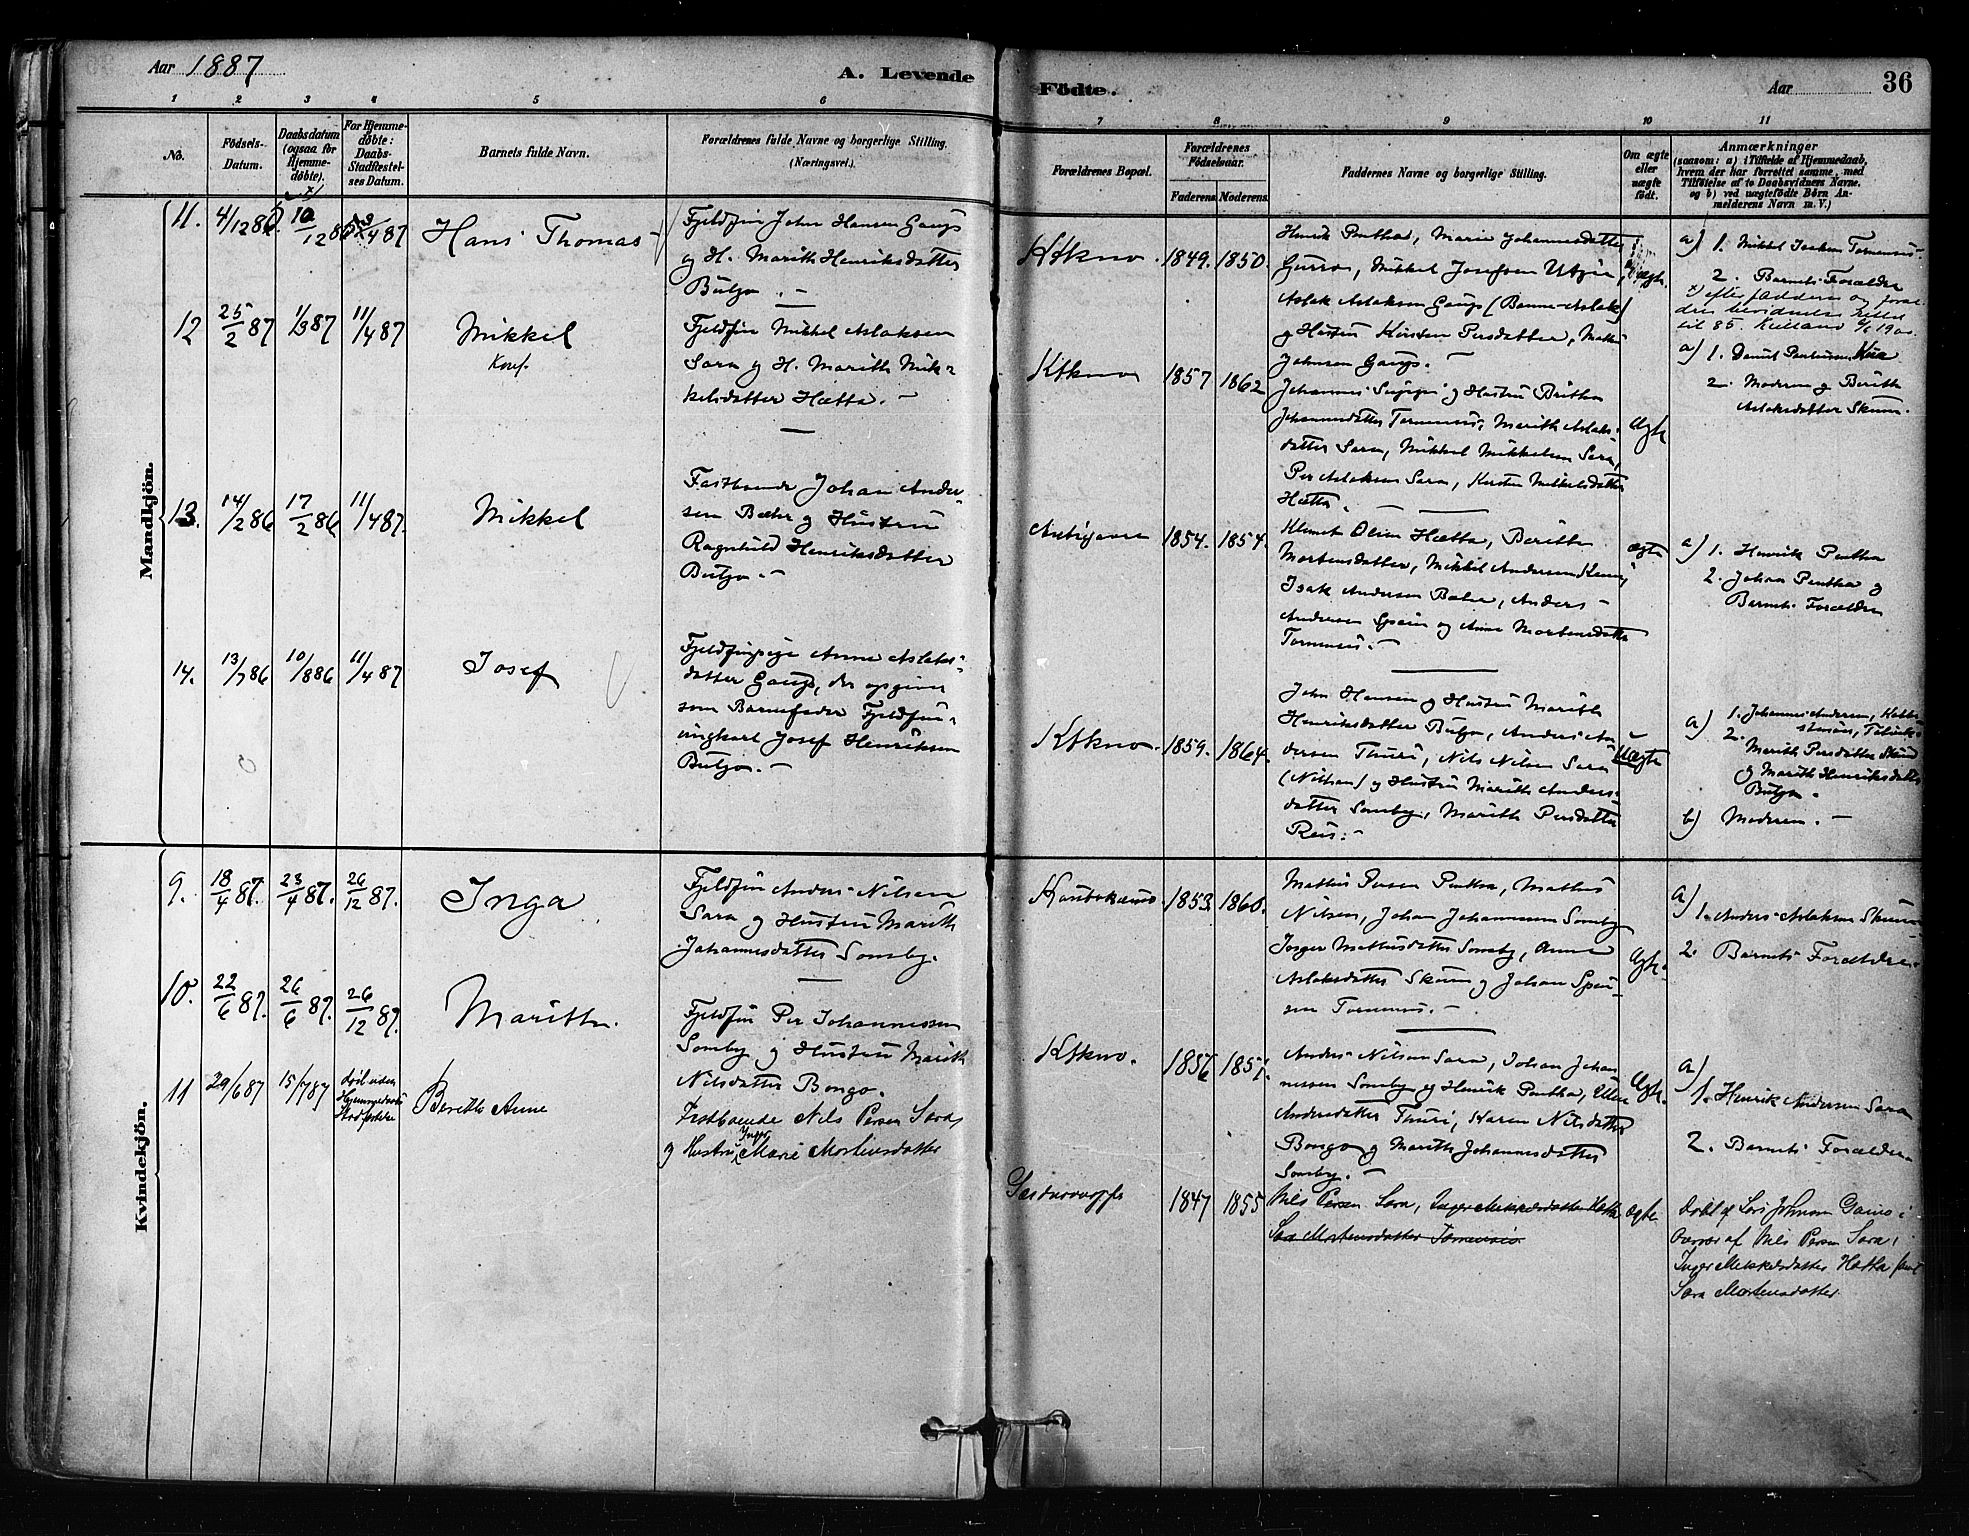 Aar 1887
A. Levende
Födte.
Aar
36
1 2 3 4 5 6 7 8 9 10 11
No.
Födsels-
Datum.
Daabsdatum
(ogsaa for
Hjemme-
døbte).
For Hjemme-
døbte:
Daabs-
Stadfæstel-
ses Datum.
Barnets fulde Navn.
Forældrenes fulde Navne og borgerlige Stilling.
(Næringsvei.)
Forældrenes Bopæl.
Forældrenes
Födselsaar.
Faderens
Moderens.
Faddernes Navne og borgerlige Stilling.
Om ægte
eller
uægte
født.
Anmærkninger
(saasom: a) i Tilfælde af Hjemmedaab,
hvem der har forrettet samme, med
Tilføielse af to Daabsvidners Navne,
og b) ved uægtefødte Børn An-
melderens Navn m. V.)
Mandkjön.
11.
4/12 86
10/12 86
Hans Thomas
Fjeldfin John Hansen Gaup
og H. Marith Henriksdatter
Buljo. —
Ktkno.
1849. 1850.
Henrik Penthas, Marie Johannesdatter
Mikkel Josefsen Utzie,
Aslak Aslaksen Gaup (Banne-Aslak)
og Hustru Kirsten Persdatter,
Johnsen Gaup. —
a) 1. Mikkel Isaksen Tornensis
2. Barnets Forældre
12
25/2 87
1/3 87
11/4 87
Mikkel
Konf.
Fjeldfin Mikkel Aslaksen
Sara og H. Marith Mik-
kelsdatter Hætta. —
Ktkno
1857 1862
og Hustru Britha
Johannesdatter Tornensis, Marith Aslaks-
datter Sara, Mikkel Mikkelsen Sara,
Per Aslaksen Sara, Kirsten Mikkelsdatter
Hætta. —
Ægte
a) 1.
2. Moderen og Berith
Aslaksdatter Skum.
13.
14/2 86
17/2 86
11/4 87.
Mikkel
Fastboende Johan Ander-
sen Bæhr og Hustru
Ragnhild Henriksdatter
Buljo. —
1854. 1854.
Klemet Olsen Hætta, Beritha
Mortensdatter, Mikkel Andersen
Isak Andersen Bæhr, Anders
Andersen og Anne Mortensdatter
Tornensis. —
ægte
a) 1. Henrik Pentha
2. Johan Pentha og
Barnets Forældre
14.
13/7 86
10/8 86
11/4 87
Josef
Fjeldfinpige Anne Aslaks-
datter Gaup, der opgiver
som Barnefader Fjeldfin-
ungkarl Josef Henriksen
Buljo. —
Ktkno.
1859. 1864.
John Hansen og Hustru Marith
Henriksdatter Buljo, Anders An-
dersen Thuri, Nils Nilsen Sara
(Nilsen) og Hustru Marith Anders-
datter Somby, Marith Persdatter
Uægte
a) 1. Johannes Andersen,
2.
Marith Persdatter Skum
og Marith Henriksdatter
Buljo.
b) Moderen. —
Kvindekjön.
9.
18/4 87.
23/4 87.
26/12 87.
Inga
Fjeldfin Anders Nilsen
Sara og Hustru Marith
Johannesdatter Somby.
Kautokeino.
1853. 1860.
Mathis Persen Pentha, Mathis
Nilsen, Johan Johannesen Somby
Inger Mathisdatter Somby, Anne
Aslaksdatter Skum og Johan
Tornensis. —
Ægte.
a)
1. Anders Aslaksen Skum
2. Barnets Forældre
10.
22/6 87.
26/6 87.
26/12 87.
Maritha.
Fjeldfin Per Johannessen
Somby og Hustru Marith
Nilsdatter Bongo.
Ktkno.
1856 1851.
Anders Nilsen Sara, Johan Johan-
nessen Somby og Henrik Pentha, Ellen
Andersdatter Thuri, Karen Nilsdatter
Bongo og Marith Johannesdatter
Somby. —
Ægte.
a)
1. Henrik Andersen Sara
2. Barnets Forældre
11
29/6 87
15/7 87
død uden
Hjemmedaabs
Stadfæstelse
Berith Anne
Fastboende Nils Persen Sara
og Hustru Inger Marie Mortensdatter
1847 1855
Nils Persen Sara, Inger Mikkelsdatter Hætta
Sara Mortensdatter Tornensis
ægte
døbt af Lars Johnsen Gaino i
Overvær af Nils Persen Sara,
Inger Mikkelsdatter Hætta samt
Sara Mortensdatter